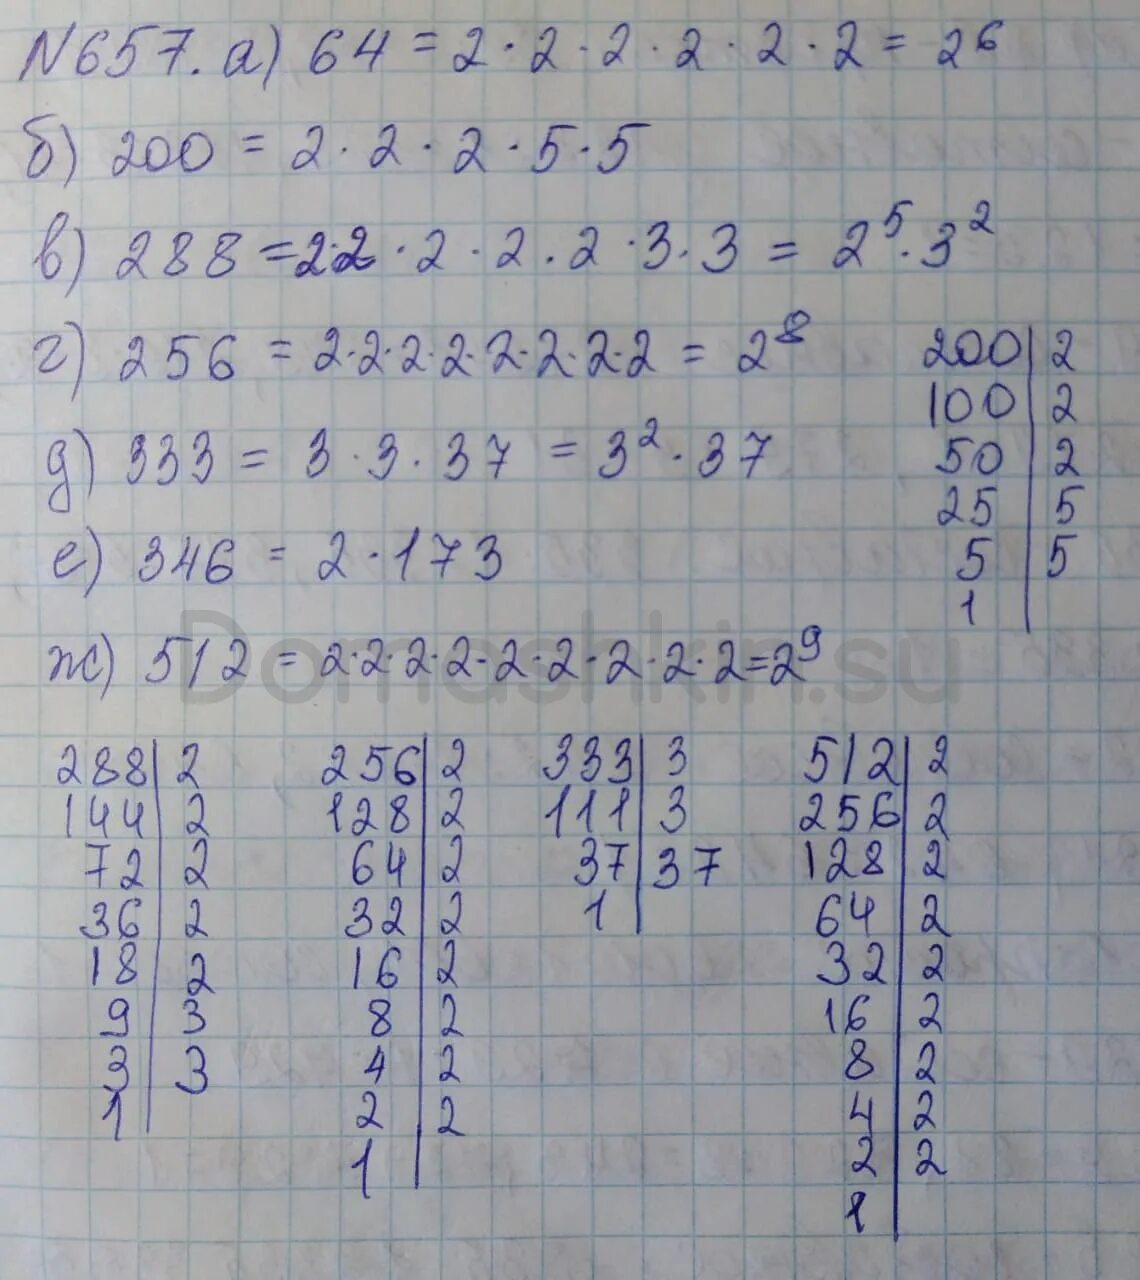 №657. а) 64 = 2 · 2 · 2 · 2 · 2 · 2 = 2⁶
б) 200 = 2 · 2 · 2 · 5 · 5
в) 288 = 2·2 · 2 · 2 · 2 · 3 · 3 = 2⁵ · 3²
г) 256 = 2·2·2·2·2·2·2·2 = 2⁸
д) 333 = 3 · 3 · 37 = 3² · 37
е) 346 = 2 · 173
ж) 512 = 2·2·2·2·2·2·2·2·2 = 2⁹
200|2
100|2
50|2
25|5
5|5
1|
Domashkin.su
288|2
144|2
72|2
36|2
18|2
9|3
3|3
1|
256|2
128|2
64|2
32|2
16|2
8|2
4|2
2|2
1|
333|3
111|3
37|37
1|
512|2
256|2
128|2
64|2
32|2
16|2
8|2
4|2
2|2
1|